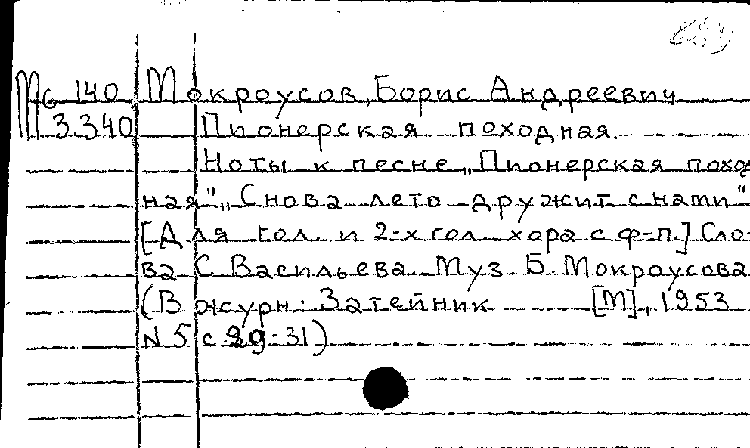 М6 140 Мокроусов, Борис Андреевич
3.340 Пионерская походная
Ноты к песне „Пионерская поход
ная" „Снова лето дружит с нами"
[Для гол. и 2-х гол. хора с ф-п.] Сло-
ва С. Васильева Муз. Б. Мокроусова
(В журн: Затейник [М], 1953
N 5 с 29-31)